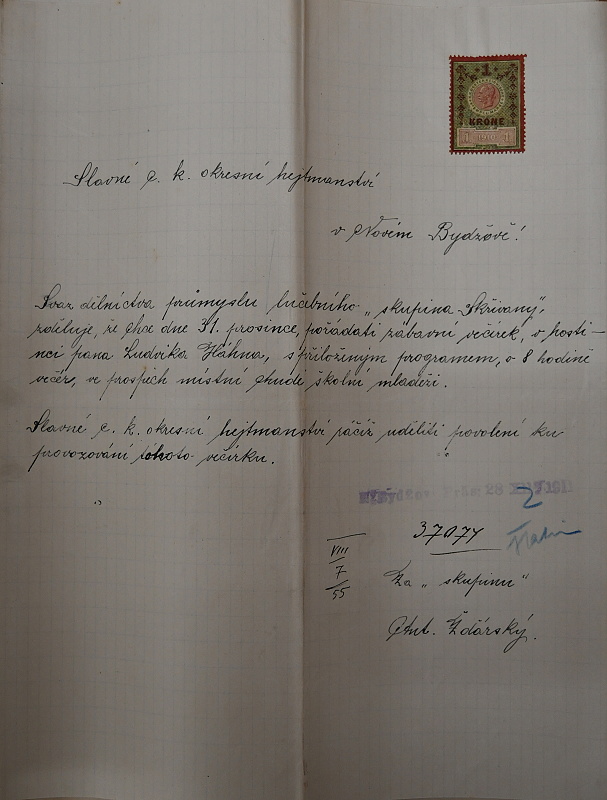 1
KRONE
1910
Slavné c. k. okresní hejtmanství
v Novém Bydžově!
Svaz dělnictva průmyslu lučebního „skupina Skřivany",
zděluje, že chce dne 31. prosince, pořádati zábavní večírek, v hosti-
nci pana Ludvíka Háhna, s přiloženým programem, o 8 hodině
večer, ve prospěch místní chudé školní mládeži.
Slavné c. k. okresní hejtmanství ráčiž uděliti povolení ku
provozování tohoto večírku.
28
2
37074
VIII
7
55
Za „skupinu"
Ant. Žďárský.